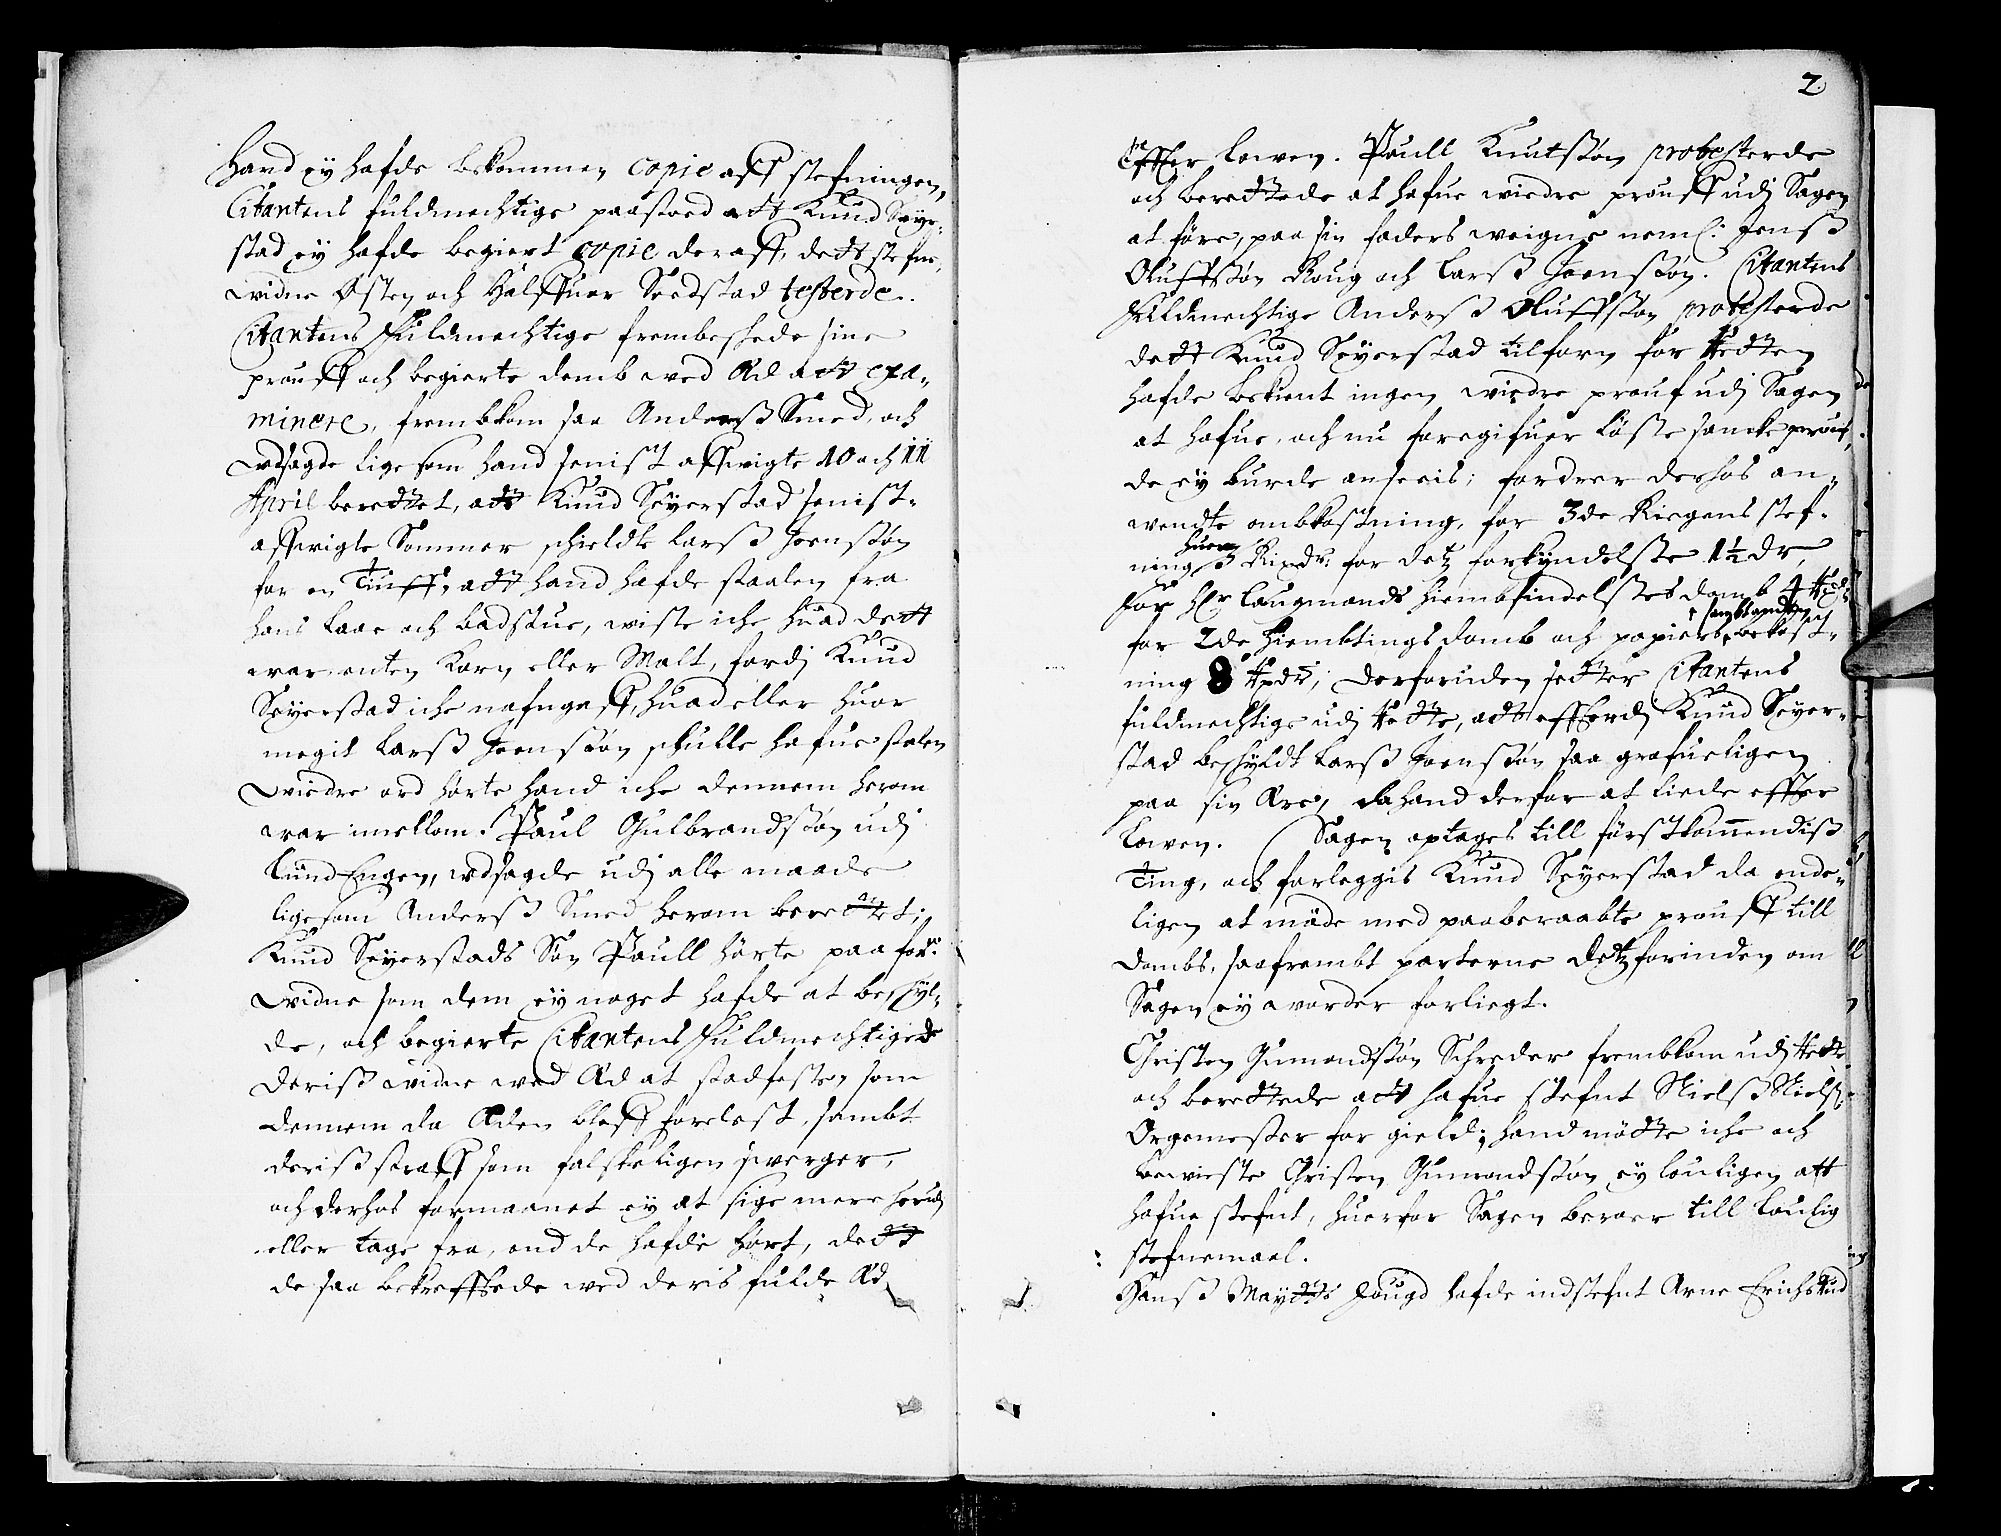 Hand ey hafde bekommen copie aff stefningen,
Citantens fuldmechtige paastoed att Knud Seyer-
stad ey hafde begiert copie deraff, dett stefne-
widne Østen och Halffuor Seedstad testerde.
Citantens Fuldmechtige frembeskede sine
prouff och begierte demb wed Æd att exa-
minere, frembkom saa Anderss Smed, och
udsagde lige som hand senist affwigte 10 och 11
April berettet, att Knud Seyerstad senist-
affwigte Sommer schieldte Larss Joenssøn
for en Tiuff, att hand hafde staalen fra
hans Laae och badstue, wiste iche huad dett
war enten Korn eller Malt, fordj Knud
Seyerstad iche nafngaff, huad eller huor
megit Larss Joenssøn schulle hafue stalen
widre ord hørte hand iche dennem herom
war imellom. Paul Gulbrandssøn udj
Lund Engen, udsagde udj alle maade
ligesom Anderss Smed herom berettet;
Knud Seyerstads Søn Paull hørte paa forne
widne som dem ey noget hafde at beskyl-
de, och begierte Citantens Fuldmechtige
deriss widne wed Æd at stadfesten som
dennem da Æden bleff forelæst, sambt
deriss straff som falskeligen swerger,
och derhos formaanet ey at sige mere herudj
eller tage fra, end de hafde hørt, dett
de saa bekrefftede wed deris fulde Æd
2
Effter lowen. Paull Knutssøn protesterde
och berettede at hafue widre prouff udj Sagen
at føre, paa sin faders weigne neml: Jenss
Oluffssøn Roug och Larss Joenssøn. Citantens
Fuldmechtige Anderss Oluffssøn protesterde
dett Knud Seyerstad tilforn for Retten
hafde bekient ingen widre prouf udj Sagen
at hafue, och nu foregifuer løste snacke prouf,
de ey burde anseeis; fordrer derhos an-
wendte ombkostning, for 3de Riegens stef-
ning huer 3 Rixdr: for detz forkyndelsse 1½ dr,
For Hr Laugmands hiembfindelsses domb 4 Rdr
for 2de Hiembtings domb och papiers sambt anden bekost-
ning 8 Rixdr, derforuden setter Citantens
fuldmechtige udj Rette, att efftterdj Knud Seyer-
stad beskyldt Larss Joenssøn saa grofueligen
paa sin Ære, da hand derfor at liede effter
Lowen. Sagen optages till førstkommendiss
Ting, och forleggis Knud Seyerstad da ende-
ligen at møde med paaberaabte prouff till
dombs, saafrembt parterne detz forinden om
Sagen ey worder forliegt.
Christen Gumondssøn Schreder frembkom udj Rette
och berettede att hafue stefnt Nielss Nielss:
Orgemester for gield; hand mødte iche och
bewiiste Christen Gumondssøn ey louligen att
hafue stefnt, huorfor Sagen beroer till loulig
stefnemaal.
Hanss Maydts Fougd hafde indstefnt Arne Erichsrud